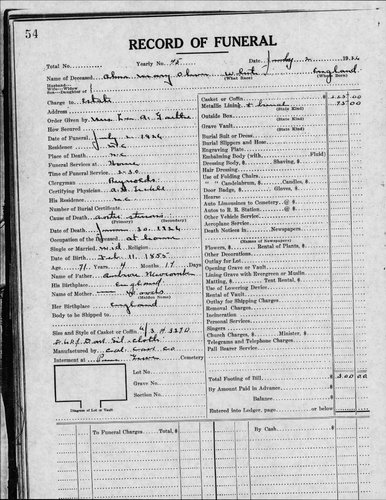 54
RECORD OF FUNERAL
Total No. Yearly No. 75 Date 1926
Name of Deceased Mary White (What Race) England (Where Born)
Husband—
Wife—Widow
Son—Daughter of
Charge to Estate
Address
Order Given by Mrs
How Secured
Date of Funeral July 2 1926
Residence N.C
Place of Death N.C
Funeral Services at Home
Time of Funeral Service 2:30
Clergyman Reynolds
Certifying Physician
His Residence N.C.
Number of Burial Certificate
Cause of Death (Primary) (Secondary)
Date of Death June 30 1926
Occupation of the Deceased at home
Single or Married wid Religion
Date of Birth Feb 11, 1855
Age 71 Years 4 Months 19 Days
Name of Father Newcomb
His Birthplace England
Name of Mother (Maiden Name)
Her Birthplace England
Body to be Shipped to
Size and Style of Casket or Coffin 6/3
Manufactured by
Interment at Cemetery
Lot No.
Grave No.
Section No.
Diagram of Lot or Vault
Casket or Coffin $
Metallic Lining & burial (State Kind) 75.00
Outside Box (State Kind)
Grave Vault (State Kind)
Burial Suit or Dress
Burial Slippers and Hose
Engraving Plate
Embalming Body (with Fluid)
Dressing Body, $ Shaving, $
Hair Dressing
Use of Folding Chairs
" " Candelabrum, $ Candles, $
Door Badge, $ Gloves, $
Hearse
Auto Limousines to Cemetery @ $
Autos to R. R. Station @ $
Other Vehicle Service
Aeroplane Service
Death Notices in Newspapers
(Names of Newspapers)
Flowers, $ Rental of Plants, $
Other Decorations
Outlay for Lot
Opening Grave or Vault
Lining Grave with Evergreen or Muslin
Matting, $ Tent Rental, $
Use of Lowering Device
Rental of Vault
Outlay for Shipping Charges
Removal Charges
Incineration
Personal Services
Singers
Church Charges, $ Minister, $
Telegrams and Telephone Charges
Pall Bearer Service
Total Footing of Bill $ 300.00
By Amount Paid in Advance
Balance
Entered into Ledger, page or below
To Funeral Charges Total, $ By Cash $